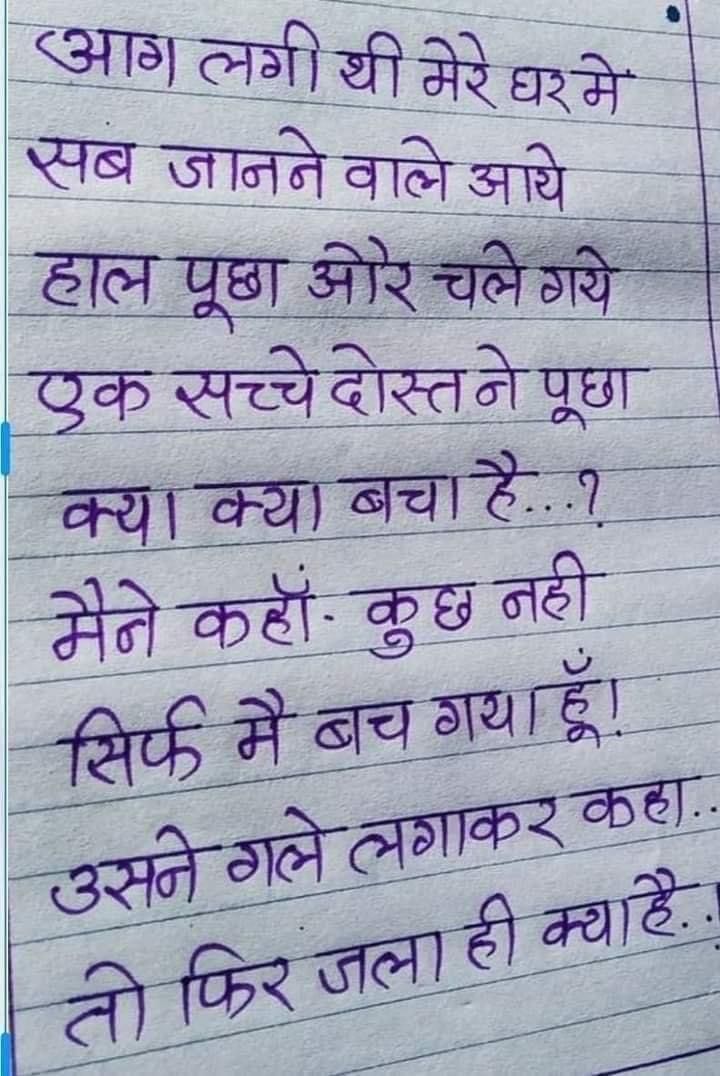 आग लगी थी मेरे घर मे
सब जानने वाले आये
हाल पूछा और चले गये
एक सच्चे दोस्त ने पूछा
क्या क्या बचा है...?
मैने कहाँ- कुछ नही
सिर्फ मै बच गया हूँ!
उसने गले लगाकर कहा..
तो फिर जला ही क्या है..!